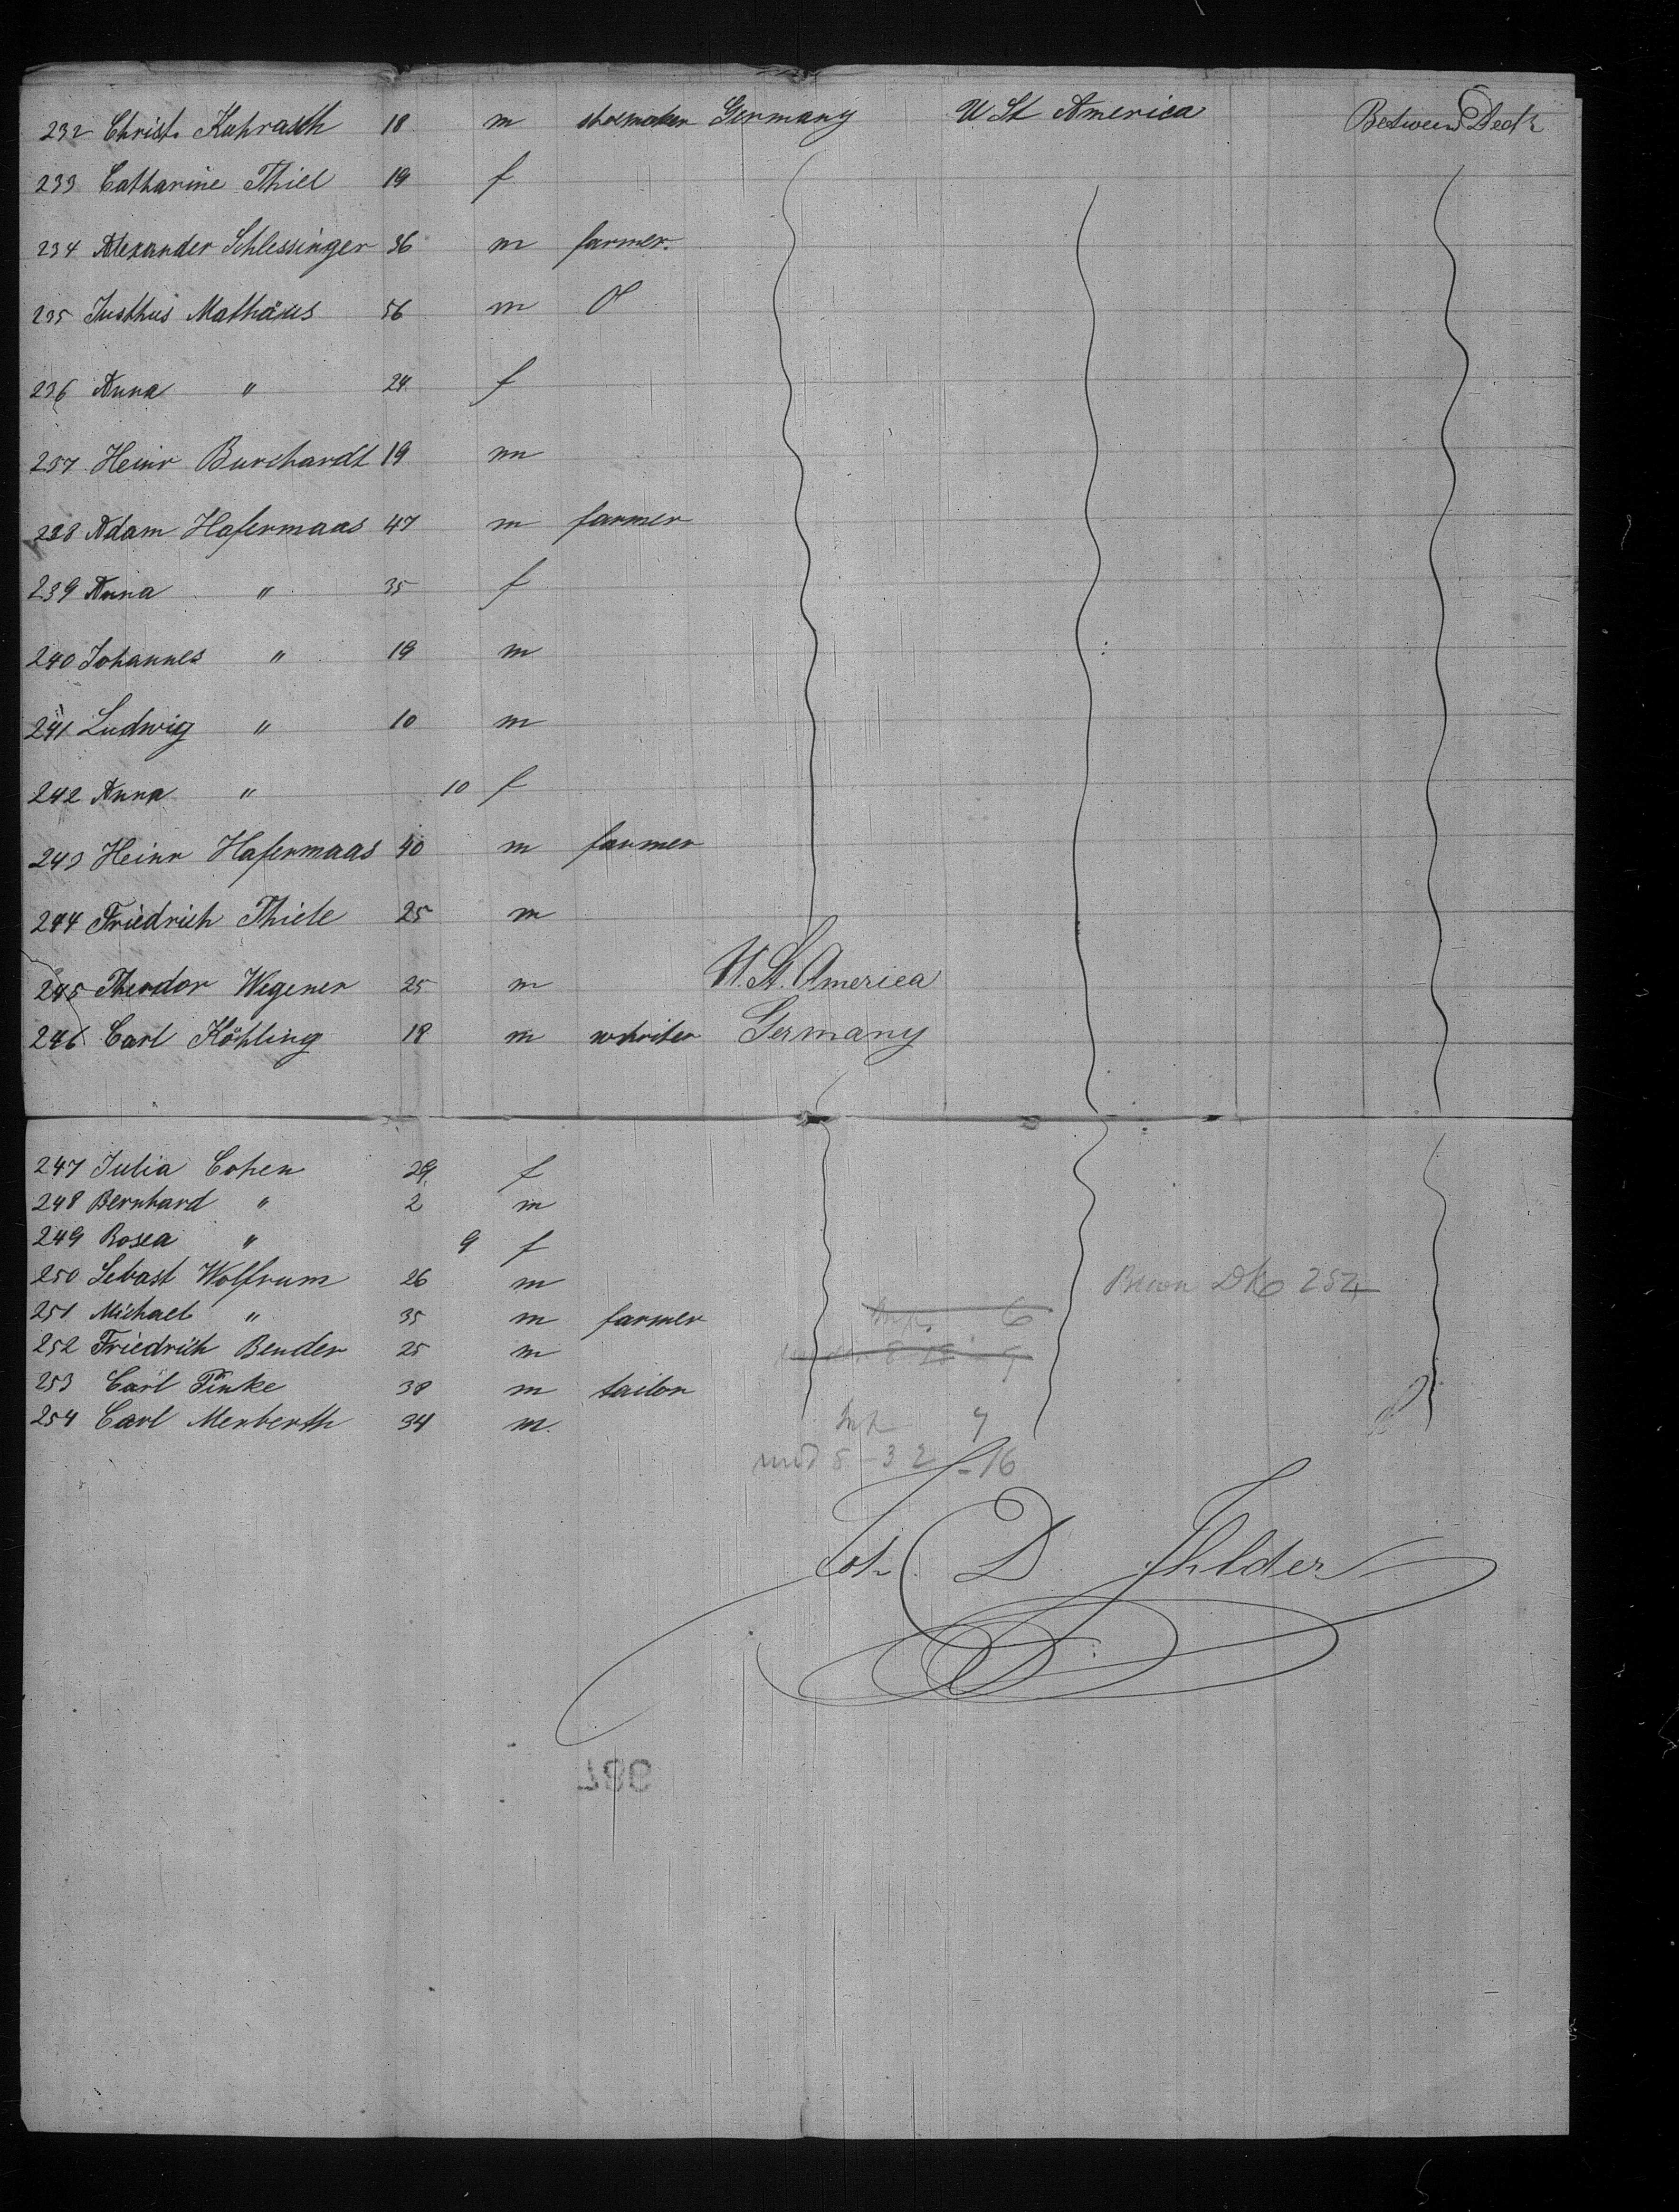 232 Christ. Kuhrasch 18 m shoemaker Germany U St America Between Deck
233 Catharine Thiel 19 f
234 Alexander Schlessinger 36 m farmer.
235 Justhus Mathäus 56 m
236 Anna " 24 f
237 Heinr Burchardt 19 m
238 Adam Hafermaas 47 m farmer
239 Anna " 35 f
240 Johannes " 19 m
241 Ludwig " 10 m
242 Anna " 10 f
243 Heinr Hafermaas 40 m farmer
244 Friedrich Thiele 25 m
245 Theodor Wegener 25 m U. St. America
246 Carl Köhling 18 m whriter Germany
247 Julia Cohen 29 f
248 Bernhard " 2 m
249 Rosea " 9 f
250 Sebast Wolfrum 26 m
251 Michael " 35 m farmer
252 Friedrich Bender 25 m
253 Carl Finke 38 m tailor
254 Carl Merberth 34 m.
254
Inf 7
und 8 - 32 - 16
Joh. D. Ihlder